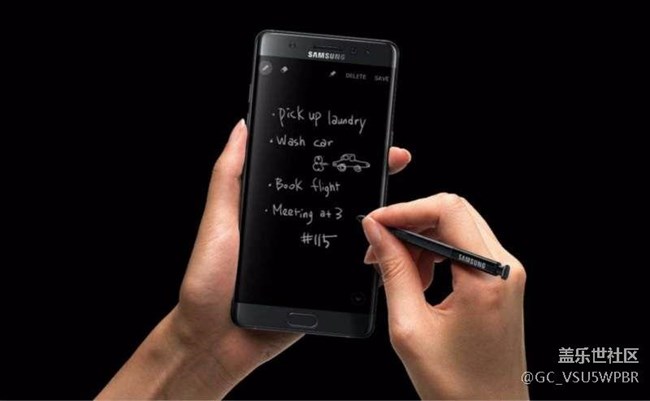 SAMSUNG
DELETE SAVE
• pick up laundry
• Wash car
• Book flight
• Meeting at 3
#115
SAMSUNG
盖乐世社区
@GC_VSU5WPBR